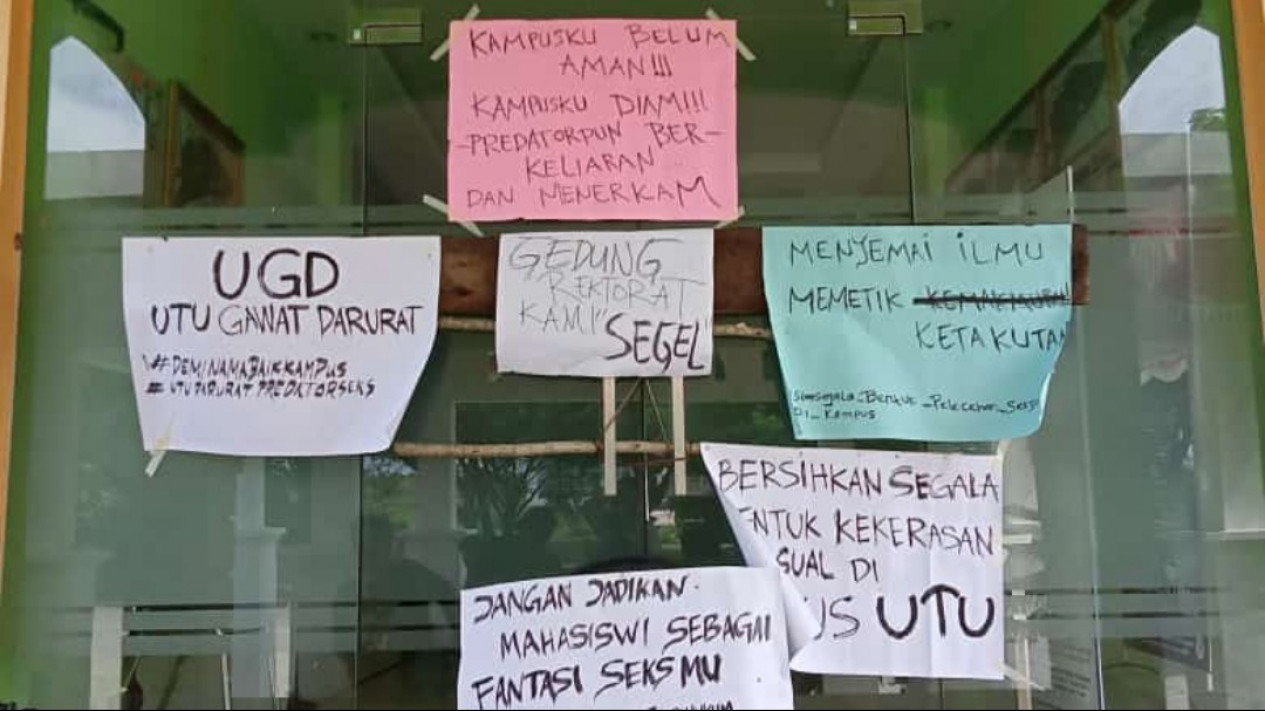 KAMPUSKU BELUM
AMAN!!!
KAMPUSKU DIAM!!!
-PREDATORPUN BER-
KELIARAN
DAN MENERKAM
UGD
UTU GAWAT DARURAT
#DEMINAMABAIKKAMPUS
#UTUDARURATPREDATORSEKS
GEDUNG
REKTORAT
KAMI "SEGEL"
MENYEMAI ILMU
MEMETIK KEMAKMURAN
KETAKUTAN
BERSIHKAN SEGALA
ENTUK KEKERASAN
SUAL DI
US UTU
JANGAN JADIKAN
MAHASISWI SEBAGAI
FANTASI SEKSMU